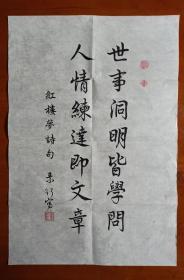 世事洞明皆學問
人情練達即文章
紅樓夢詩句